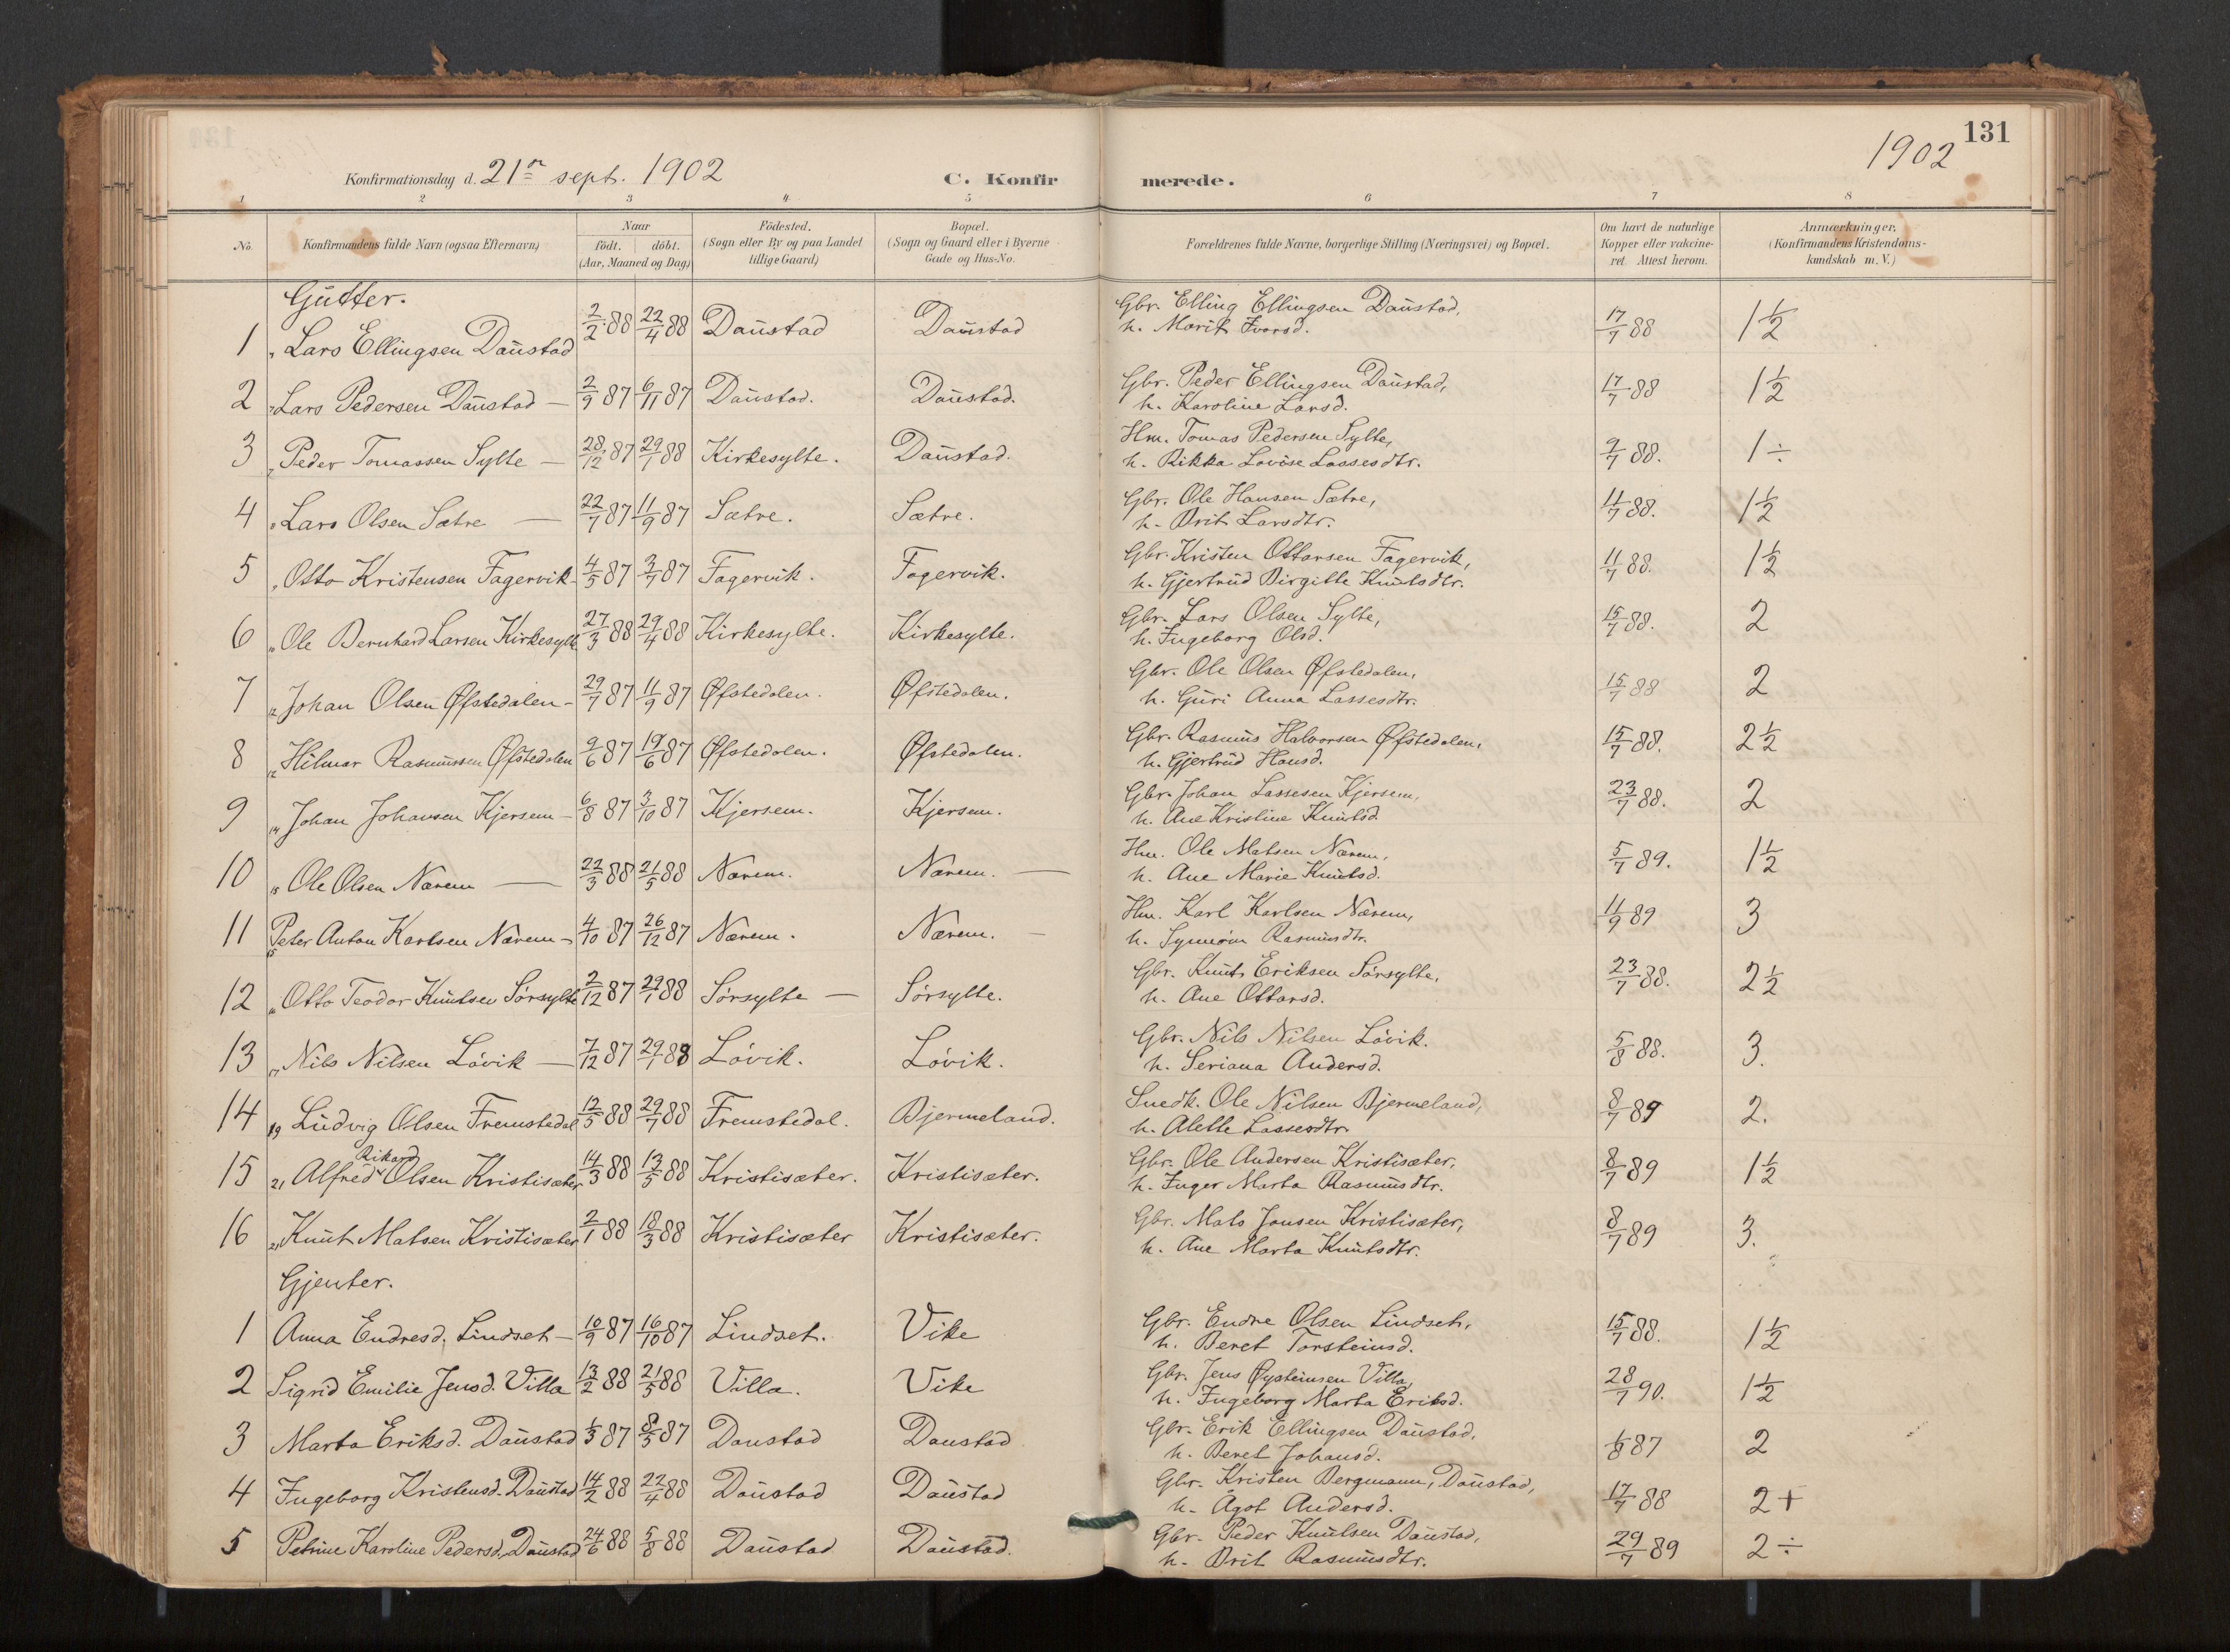 131
1902
Konfirmationsdag d. 21de sept. 1902
C. Konfirmerede.
1 2 3 4 5 6 7 8
No. Konfirmandens fulde Navn (ogsaa Efternavn) Naar födt. döbt. (Aar, Maaned og Dag) Födested. (Sogn eller By og paa Landet tillige Gaard) Bopæl. (Sogn og Gaard eller i Byerne Gade og Hus-No. Forældrenes fulde Navne, borgerlige Stilling (Næringsvei) og Bopæl. Om havt de naturlige Kopper eller vakcineret. Attest herom. Anmærkninger. (Konfirmandens Kristendomskundskab m. V.)
Gutter.
1 Lars Ellingsen Daustad 2/2 88 22/4 88 Daustad Daustad Gbr. Elling Ellingsen Daustad, h. Marit Ivarsd. 17/7 88 1½
2 Lars Pedersen Daustad — 2/9 87 6/11 87 Daustad. Daustad. Gbr. Peder Ellingsen Daustad, h. Karoline Larsd. 17/7 88 1½
3 Peder Tomassen Sylte — 28/12 87 29/1 88 Kirkesylte. Daustad. Hm. Tomas Pedersen Sylte, h. Rikka Lovise Lassesdtr. 9/7 88. 1÷
4 Lars Olsen Sætre — 22/7 87 11/9 87 Sætre. Sætre. Gbr. Ole Hansen Sætre, h. Brit Larsdtr. 11/7 88. 1½
5 Otto Kristensen Fagervik 4/5 87 3/7 87 Fagervik. Fagervik. Gbr. Kristen Ottarsen Fagervik, h. Gjertrud Birgitte Knutsdtr. 11/7 88. 1½
6 Ole Bernhard Larsen Kirkesylte 27/3 88 29/4 88 Kirkesylte. Kirkesylte. Gbr. Lars Olsen Sylte, h. Ingeborg Olsd. 15/7 88. 2
7 Johan Olsen Øfstedalen - 29/7 87 11/9 87 Øfstedalen. Øfstedalen. Gbr. Ole Olsen Øfstedalen, h. Guri Anna Lassesdtr. 15/7 88 2
8 Hilmar Rasmussen Øfstedalen 9/6 87 19/6 87 Øfstedalen. Øfstedalen. Gbr. Rasmus Halvorsen Øfstedalen, h. Gjertrud Hansd. 15/7 88. 2½
9 Johan Johansen Kjersem - 6/8 87 3/10 87 Kjersem. Kjersem. Gbr. Johan Lassesen Kjersem, h. Ane Kristine Knutsd. 23/7 88. 2
10 Ole Olsen Nærem — 22/3 88 21/5 88 Nærem. Nærem. — Hm. Ole Matsen Nærem, h. Ane Marie Knutsd. 5/7 89. 1½
11 Peter Anton Karlsen Nærem - 4/10 87 26/12 87 Nærem. Nærem. - Hm. Karl Karlsen Nærem, h. Synnøva Rasmusdtr. 11/9 89 3
12 Otto Teodor Knutsen Sörsylte 2/12 87 29/1 88 Sörsylte — Sörsylte. Gbr. Knut Eriksen Sörsylte, h. Ane Ottarsd. 23/7 88. 2½
13 Nils Nilsen Lövik — 7/12 87 29/1 88 Lövik. Lövik. Gbr. Nils Nilsen Lövik. h. Seriana Andersd. 5/8 88. 3.
14 Ludvig Olsen Fremstedal 12/5 88 29/7 88 Fremstedal. Bjermeland. Snedk. Ole Nilsen Bjermeland, h. Alette Lassesdtr. 8/7 89 2.
15 21 Alfred Rikard Olsen Kristisæter 14/3 88 13/5 88 Kristisæter. Kristisæter. Gbr. Ole Andersen Kristisæter, h. Inger Marta Rasmusdtr. 8/7 89 1½
16 21 Knut Matsen Kristisæter 2/1 88 18/3 88 Kristisæter Kristisæter. Gbr. Mats Jonsen Kristisæter, h. Ane Marta Knutsdtr. 8/7 89 3.
Gjenter.
1 Anna Endresd. Lindset - 10/9 87 16/10 87 Lindset. Vike Gbr. Endre Olsen Lindset, h. Beret Torsteinsd. 15/7 88. 1½
2 Sigrid Emilie Jensd. Villa 13/2 88 21/5 88 Villa. Vike Gbr. Jens Øysteinsen Villa, h. Ingeborg Marta Eriksd. 28/7 90. 1½
3 Marta Eriksd. Daustad 1/3 87 8/5 87 Daustad Daustad Gbr. Erik Ellingsen Daustad, h. Beret Johansd. 1/8 87 2
4 Ingeborg Kristensd. Daustad 14/2 88 22/4 88 Daustad Daustad Gbr. Kristen Bergmann, Daustad, h. Ågot Andersd. 17/7 88 2+
5 Petrine Karoline Pedersd. Daustad 24/6 88 5/8 88 Daustad Daustad. Gbr. Peder Knutsen Daustad, h. Brit Rasmusdtr. 29/7 89 2÷